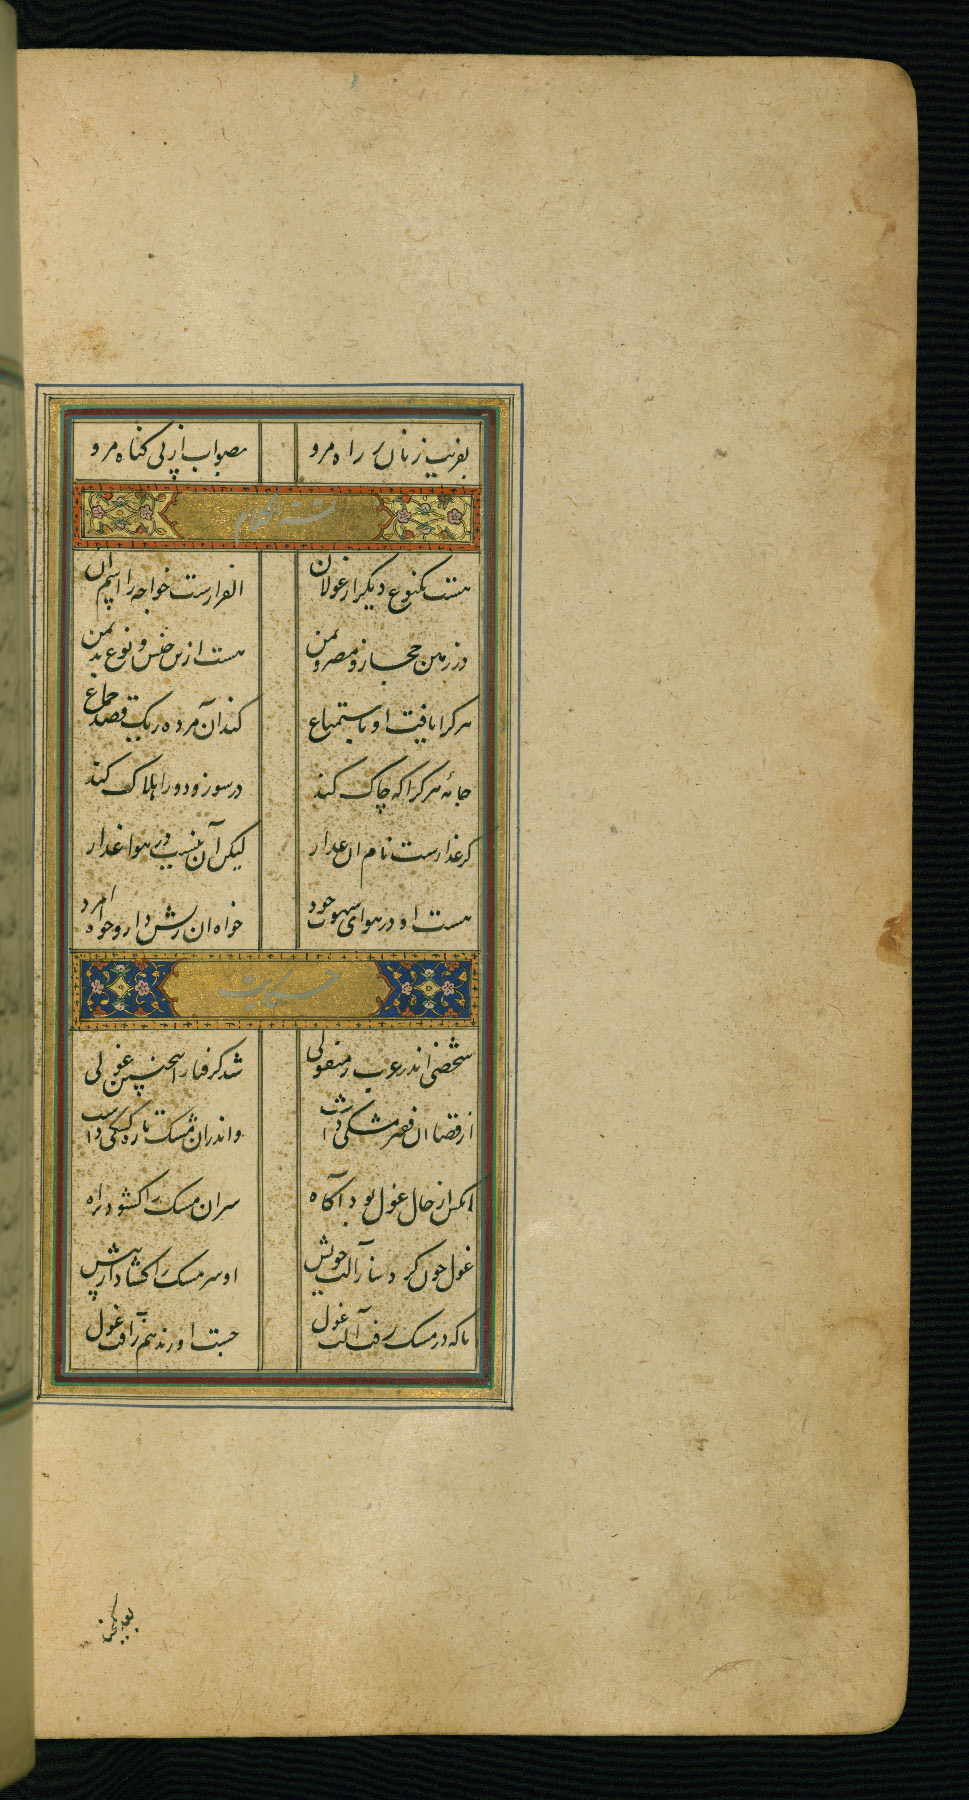 بفریب زنان ز راه مرو مصواب از پی کناه مرو
تتمة الکلام
هست یکنوع دیکر از غولان الغرارست خواجه را اسم آن
در زمین حجاز و مصر و یمن هست ازین جنس و نوع بد
هر کرا یافت او باستمتاع کند آن مرده ریک قصد جماع
جامه هر کرا که چاک کند در سوزد ورا هلاک کند
کر غدارست نام آن غدار لیکن آن نیست در هوا غدار
هست او در هوای شهوت خود خواه آن ریش دار و خواه امرد
حکایت
شخصی اندر عرب ز منقولی شد کرفتار اینچنین غولی
از قضا آن فقیر مشکی داشت واندران مشک پاره کشکی داشت
آنکس از حال غول بود آکاه سر آن مشک را کشود براه
غول چون کرد ساز آلت خویش او سر مشک را کشاد از پیش
تاکه در مشک رفت آلت غول جست او زود هم ز آفت غول